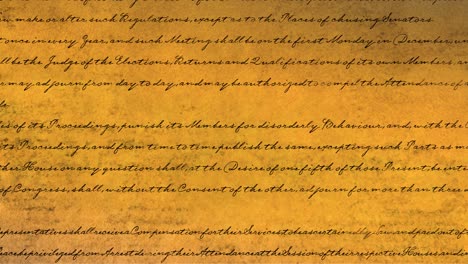 make or alter such Regulations, except as to the Places of chusing Senators
once in every Year, and such Meeting shall be on the first Monday in December, un
ll be the Judge of the Elections, Returns and Qualifications of its own Members, a
may adjourn from day to day, and may be authorized to compel the Attendance of a
es of its Proceedings, punish its Members for disorderly Behaviour, and, with the C
ts Proceedings, and from time to time publish the same, excepting such Parts as m
the House on any question shall, at the Desire of one fifth of those Present, be ente
of Congress, shall, without the Consent of the other, adjourn for more than three
epresentatives shall receive a Compensation for their Services, to be ascertained by Law, and paid out of
eace be privileged from Arrest during their Attendance at the Session of their respective Houses, and